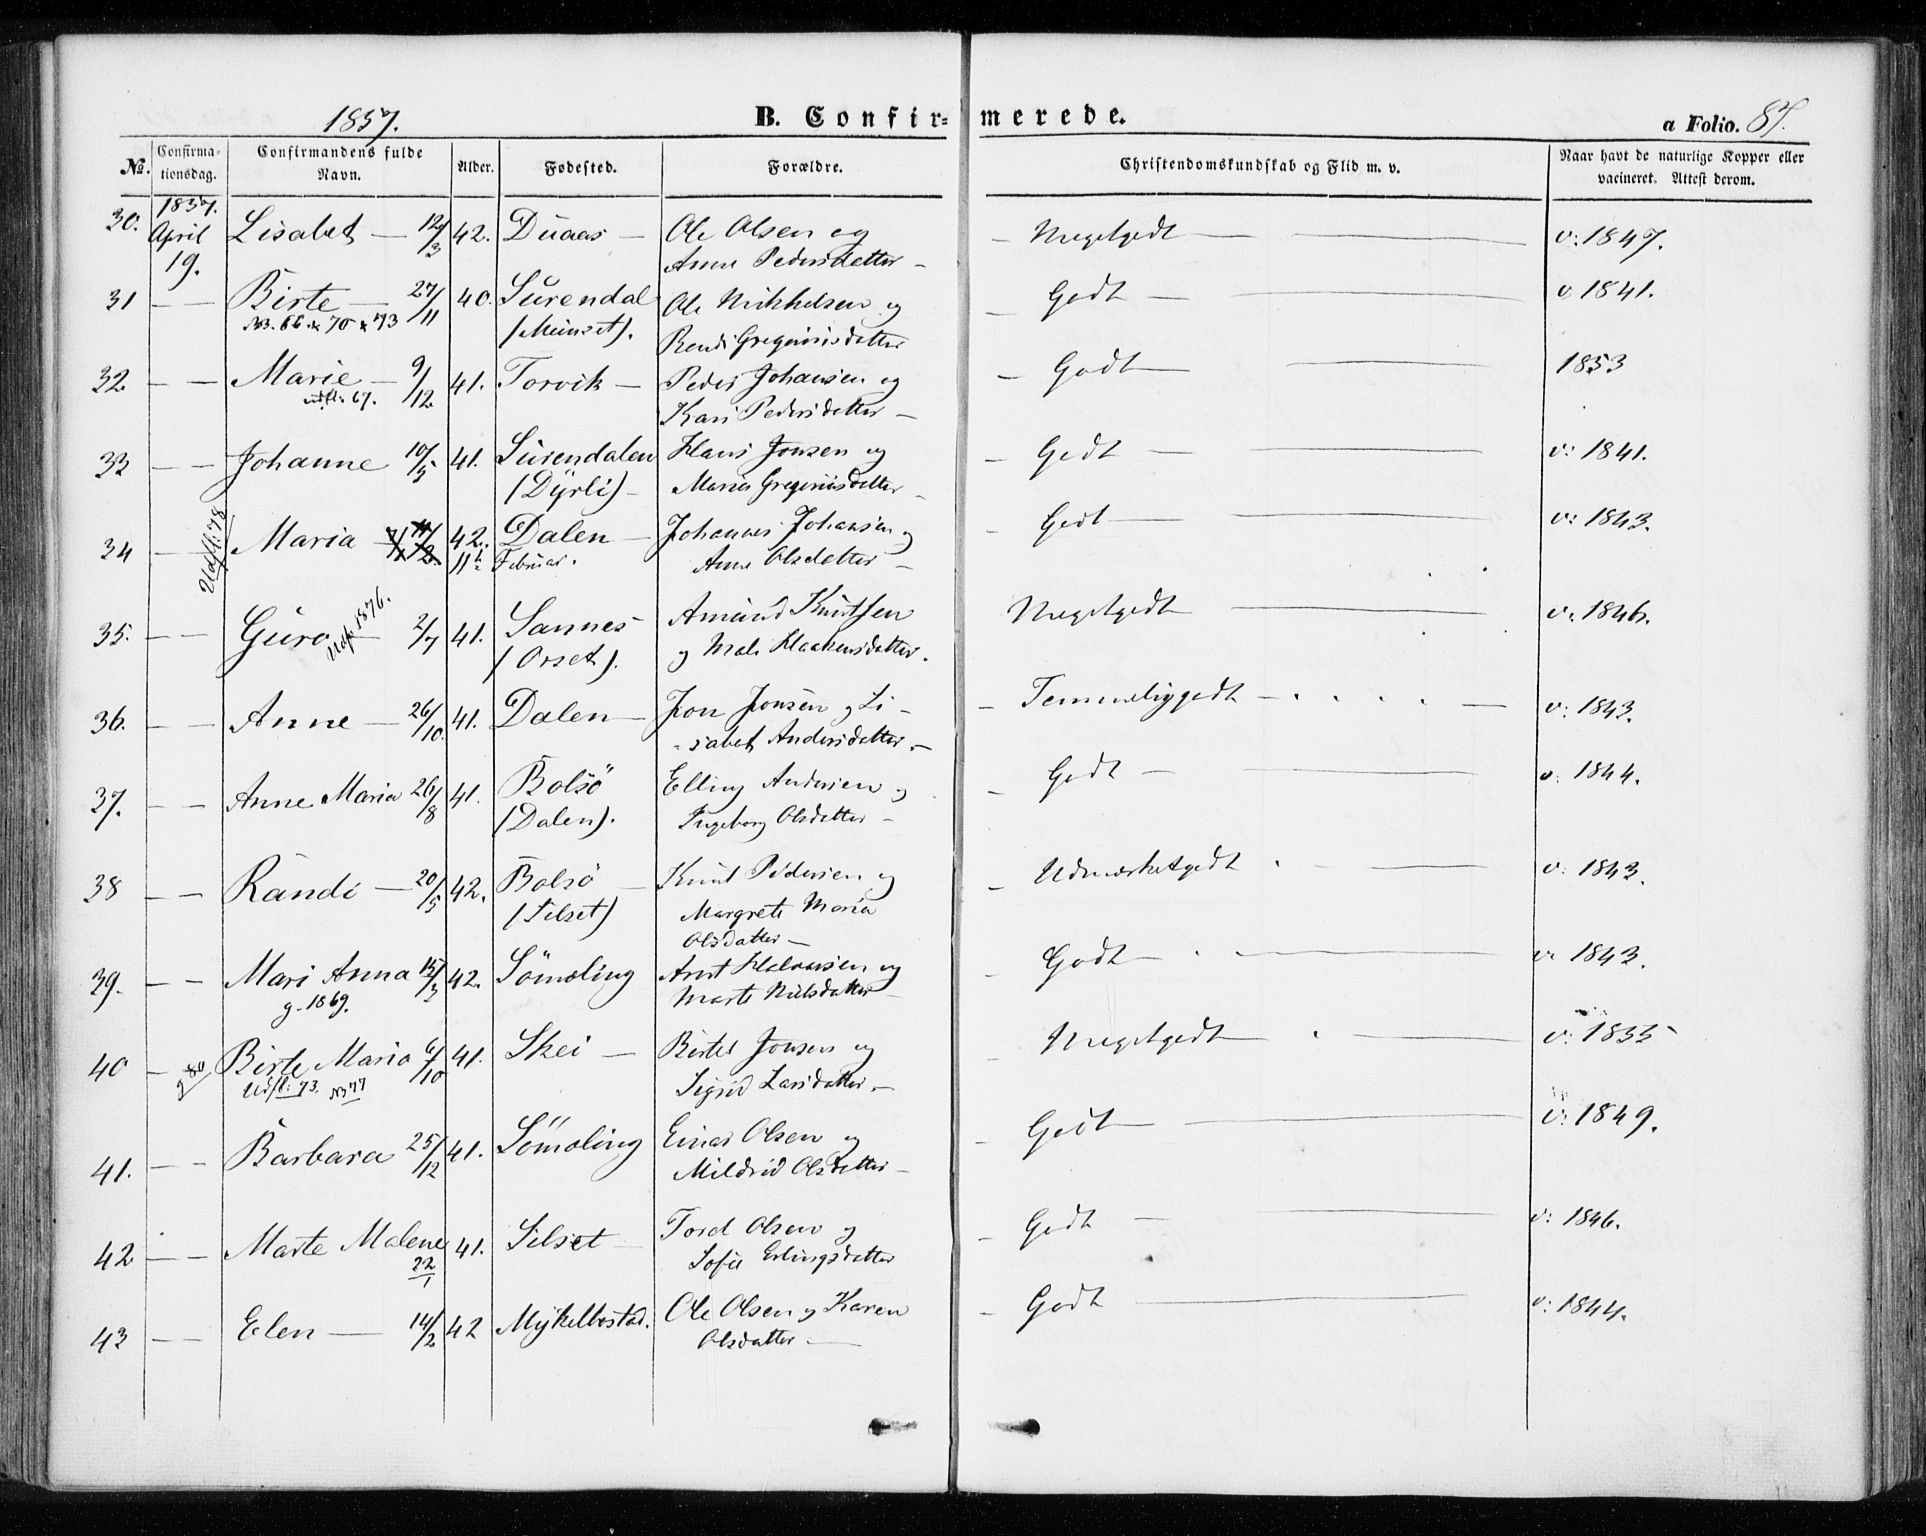 1857. B. Confir= merede. a Folio. 87.
No. Confirma- tionsdag. Confirmandens fulde Navn. Alder. Fødested. Forældre. Christendomskundskab og Flid m. v. Naar havt de naturlige Kopper eller vacineret. Attest derom.
1857.
30. April Lisabet — 12/3 42. Duaas — Ole Olsen og — Megetgodt — v: 1847.
19. Anne Pedersdatter —
31 — — Birte — 27/11 40. Surendal Ole Mikkelsen og — Godt — v. 1841.
N3. 66 & 70 & 73 (Meinset). Randi Gregoriusdatter
32. — — Marie — 9/12 41. Torvik — Peder Johansen og — Godt — 1853
udfl: 67. Kari Pedersdatter —
33 — — Johanne 10/5 41. Surendalen Hans Jonsen og — Godt — v: 1841.
(Dyrli) — Marie Gregoriusdatter —
Udfl: 78
34 — Maria — 42. Dalen — Johannes Johansen og — Godt — v: 1843.
11te Februar. Anne Olsdatter —
35. — — Guro — 2/7 41. Sannes Amund Knutssen Megetgodt — v. 1846.
Udfl. 1876. (Orset). og Mali Haakensdatter.
36. — — Anne — 26/10. 41. Dalen — Jon Jonsen og Li- — Temmeliggodt — v: 1843.
sabet Andersdatter. —
37. — — Anne Maria 26/8 41. Bolsö Elling Andersen og — Godt — v. 1844.
(Dalen). Ingeborg Olsdatter —
38 — — Randi — 20/5 42. Bolsö — Knut Pedersen og — Udmærketgodt — v: 1843.
(Silset) Margrete Maria
Olsdatter —
39. — — Mari Anna 15/3 42. Sömoling Arnt Halvorsen og — Godt — v. 1843.
g. 1869. Marte Nielsdatter —
40 — g 80 Birte Maria 6/10 41. Skei — Birter Jonsen og — Megetgodt — v: 1855
Udfl: 73. N3 77 Sigrid Larsdatter —
41. — — Barbara 25/12 41. Sömoling Einar Olsen og — Godt — v: 1849.
Mildrid Olsdatter —
42 — — Marte Malene 41. Silset — Tord Olsen og — Godt — v: 1846.
22/1 Sofie Erlingsdatter
43 — — Elen — 14/2 42 Myklebostad. Ole Olsen og Karen — Godt — v: 1844.
Olsdatter —